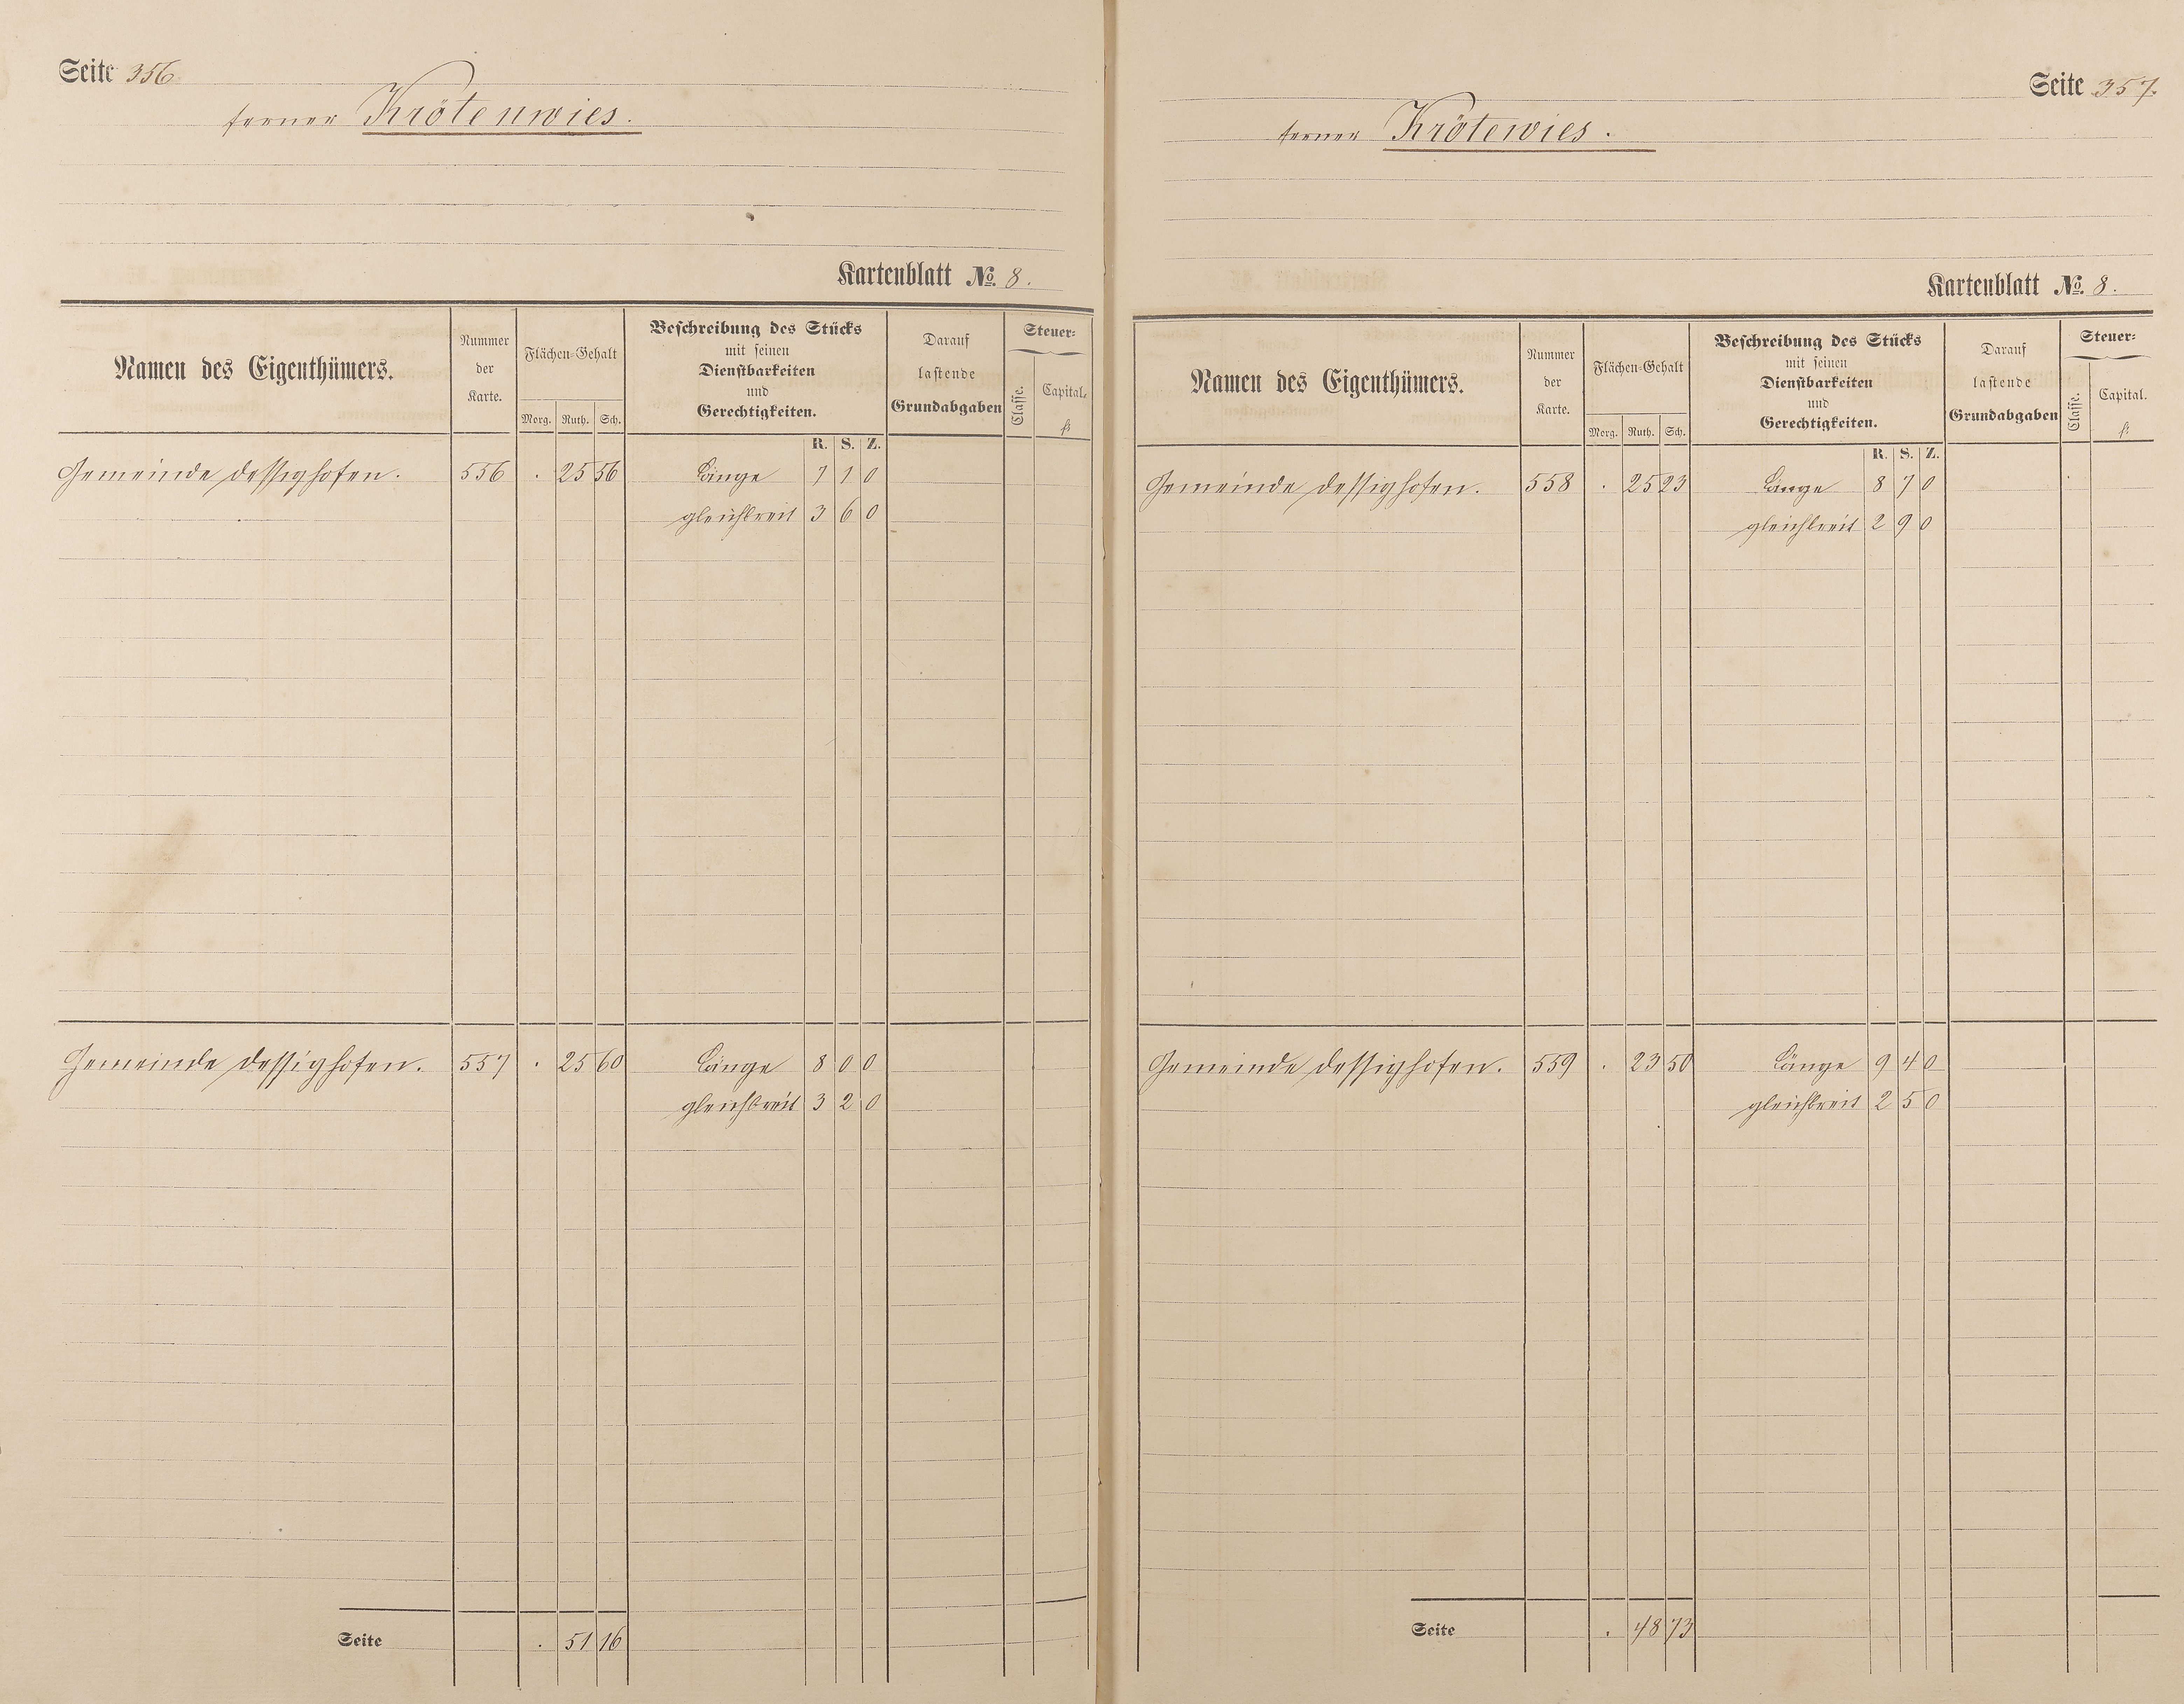 Seite 356
ferner Krötenwies.
Kartenblatt No. 8.
Namen des Eigenthümers.
Nummer der Karte.
Flächen-Gehalt
Morg. Ruth. Sch.
Beschreibung des Stücks
mit seinen
Dienstbarkeiten
und
Gerechtigkeiten.
Darauf
lastende
Grundabgaben
Steuer-
Classe. Capital.
R. S. Z.
Gemeinde Dessighofen. 556 . 25 56 Länge 7 1 0
gleichbreit 3 6 0
Gemeinde Dessighofen. 557 . 25 60 Länge 8 0 0
gleichbreit 3 2 0
Seite . 51 16
Seite 357.
ferner Krötewies.
Kartenblatt No. 8.
Namen des Eigenthümers.
Nummer der Karte.
Flächen-Gehalt
Morg. Ruth. Sch.
Beschreibung des Stücks
mit seinen
Dienstbarkeiten
und
Gerechtigkeiten.
Darauf
lastende
Grundabgaben
Steuer-
Classe. Capital.
R. S. Z.
Gemeinde Dessighofen. 558 . 25 23 Länge 8 7 0
gleichbreit 2 9 0
Gemeinde Dessighofen. 559 . 23 50 Länge 9 4 0
gleichbreit 2 5 0
Seite . 48 73